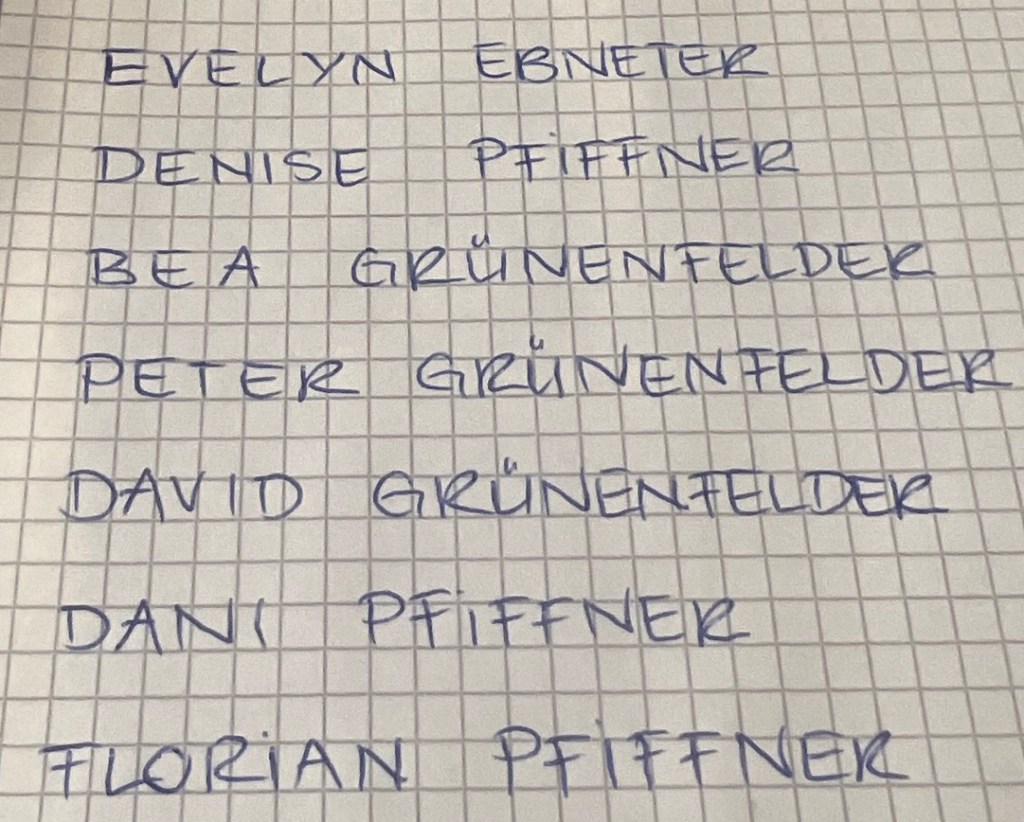 EVELYN EBNETER
DENISE PFIFFNER
BEA GRÜNENFELDER
PETER GRÜNENFELDER
DAVID GRÜNENFELDER
DANI PFIFFNER
FLORIAN PFIFFNER